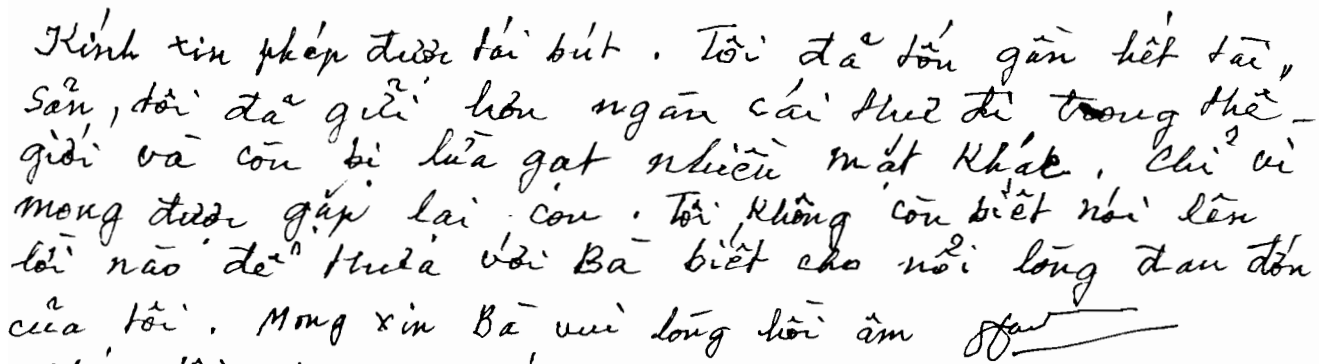 Kính xin phép được tái bút. Tôi đã tốn gần hết tài
sản, tôi đã gửi hơn ngàn cái thư đi trong thế-
giới và còn bị lừa gạt nhiều mất khác. Chỉ vì
mong được gặp lại con. Tôi không còn biết nói lên
lời nào để thưa với Bà biết cho nỗi lòng đau đớn
của tôi. Mong xin Bà vui lòng hồi âm